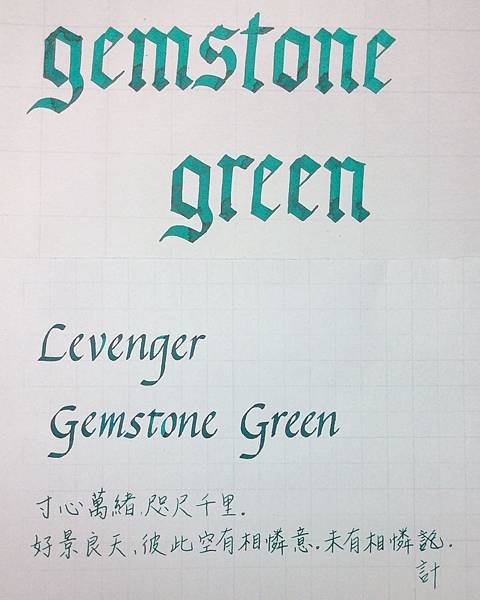 gemstone
green
Levenger
Gemstone Green
寸心萬緒,咫尺千里.
好景良天,彼此空有相憐意.未有相憐.
計